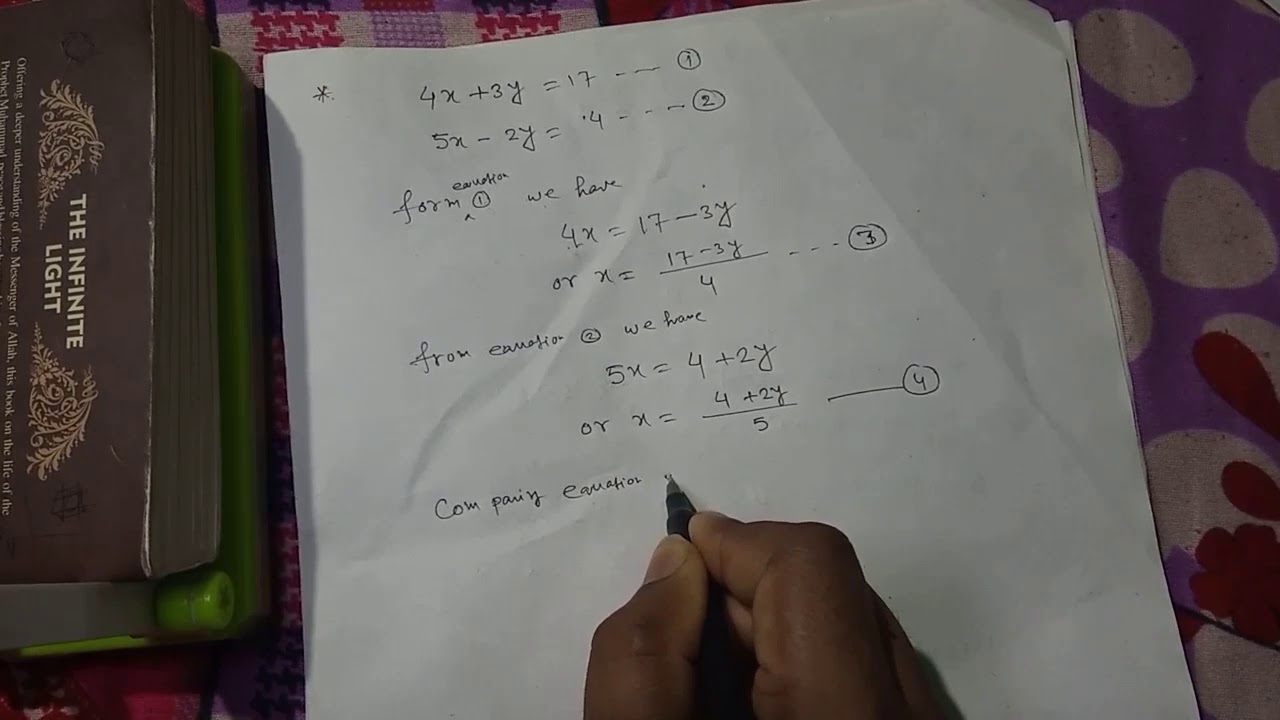 *. 4x + 3y = 17 - - — ①
5x - 2y = 4 - - - ②
form equation ① we have
4x = 17 - 3y
or x = 17 - 3y / 4 - - - ③
from equation ② we have
5x = 4 + 2y
or x = 4 + 2y / 5 — ④
Comparing equation
THE INFINITE
LIGHT
Offering a deeper understanding of the Messenger of Allah, this book on the life of the
Prophet Muhammad, peace and blessings